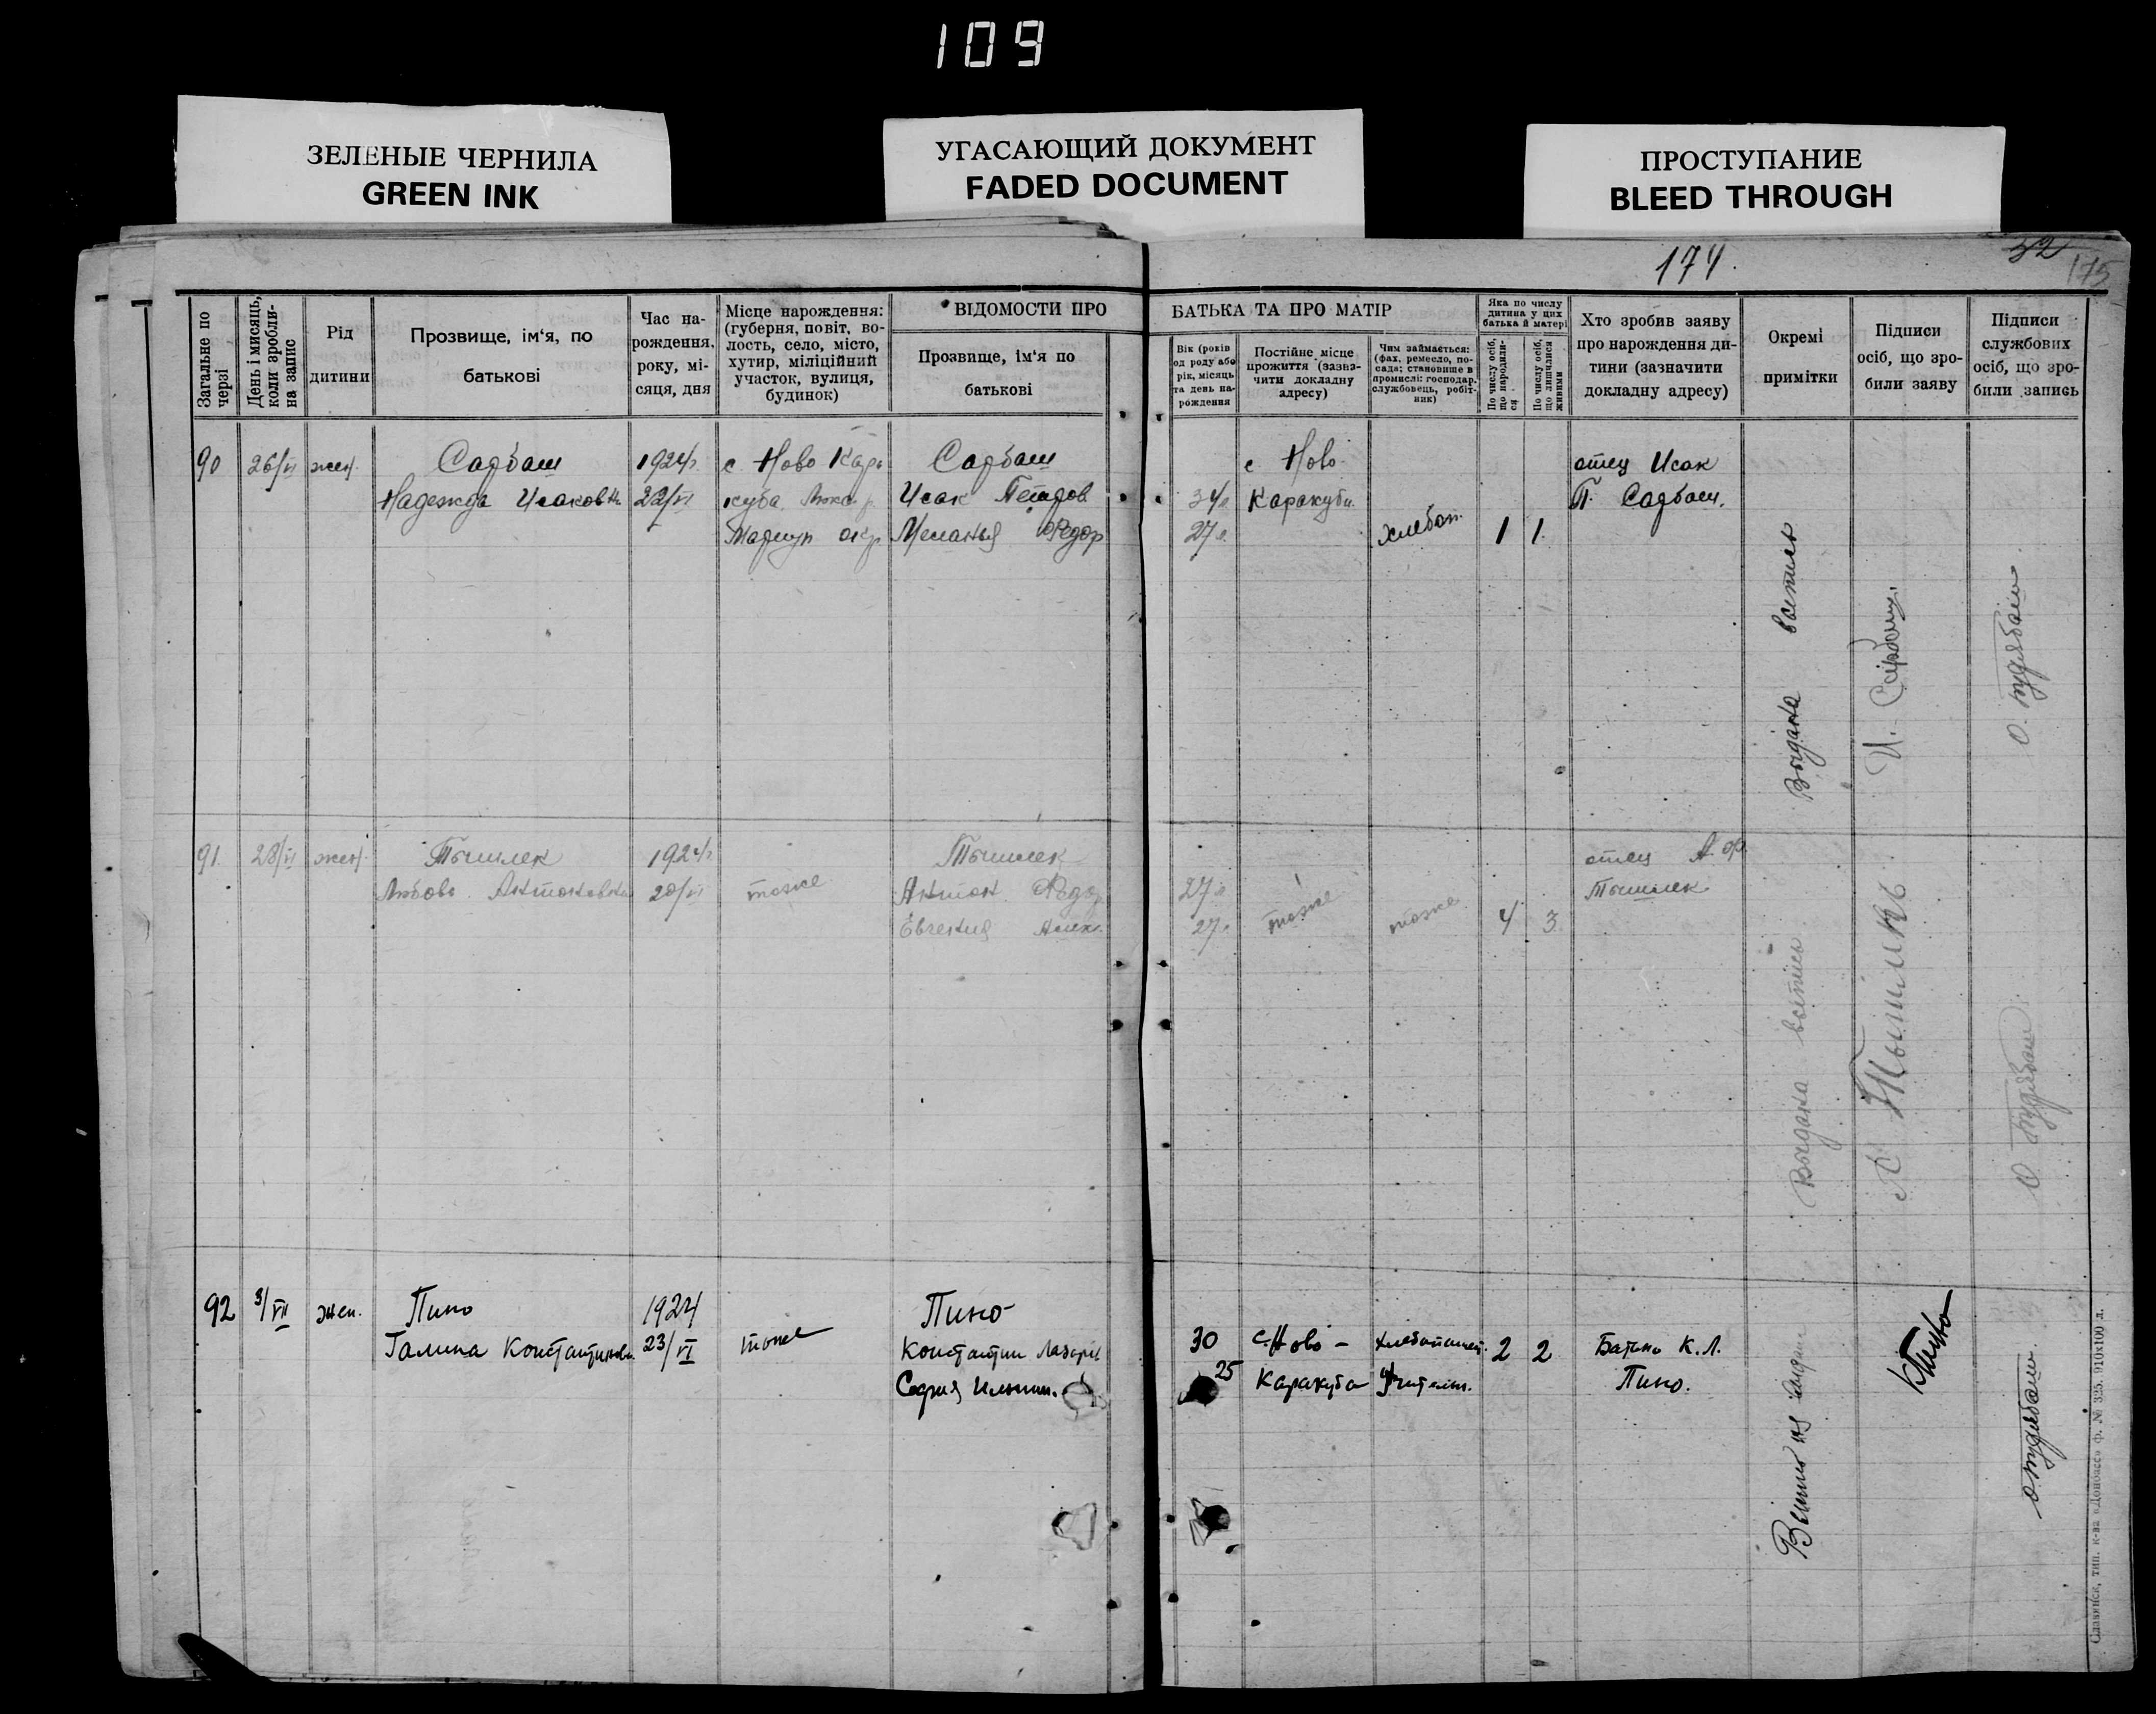 109
ЗЕЛЕНЫЕ ЧЕРНИЛА
GREEN INK
УГАСАЮЩИЙ ДОКУМЕНТ
FADED DOCUMENT
ПРОСТУПАНИЕ
BLEED THROUGH
174.
32
175
Загальне по черзі
День і мисяць, коли зробли-на запис
Рід
дитини
Прозвище, ім‘я, по
батькові
Час на-
рождення,
року, мі-
сяця, дня
Місце нарождення:
(губерня, повіт, во-
лость, село, місто,
хутир, міліційний
участок, вулиця,
будинок)
ВІДОМОСТИ ПРО
Прозвище, ім‘я по
батькові
БАТЬКА ТА ПРО МАТІР
Вік (років
од роду або
рік, місяць
та день на-
рождення
Постійне місце
прожиття (зазна-
чити докладну
адресу)
Чим займається:
(фах, ремесло, по-
сада; становище в
промислі: господар,
службовець, робіт-
ник)
Яка по числу
дитина у цих
батька й матері
По числу осіб,
що народила-
ся
По числу осіб,
що лишилися
живими
Хто зробив заяву
про нарождення ди-
тини (зазначити
докладну адресу)
Окремі
примітки
Підписи
осіб, що зро-
били заяву
Підписи
службових
осіб, що зро-
били запись
90
26/VI
жен.
Сарбаш
Надежда Исаковн
1924г.
22/VI
с. Ново Кара
куба
Мариуп окр.
Сарбаш
Исак Петров
Меланья Федор
34г.
27г.
с Ново
Каракуба
хлебоп.
1
1.
отец Исак
П. Сарбаш.
Выдана
И. Сарбаш.
91.
28/VI
жен.
Тышлек
Любовь Антоновна
1924г.
20/VI
тоже
Тышлек
Антон Федор
Евгения Алек.
27г.
27г.
тоже
тоже
4
3
отец А. Ф.
Тышлек
Выдана
92
3/VII
жен.
Пино
Галина Константиновн.
1924
23/VI
тоже
Пино
Константин Лазарев
София Ильинич.
30
25
с. Ново -
Каракуба
хлебопашец.
Учительн.
2
2
Батько К. Л.
Пино.
КПино
Славянск, тип. к-ва «Донбасс» ф. № 325. 910х100 л.